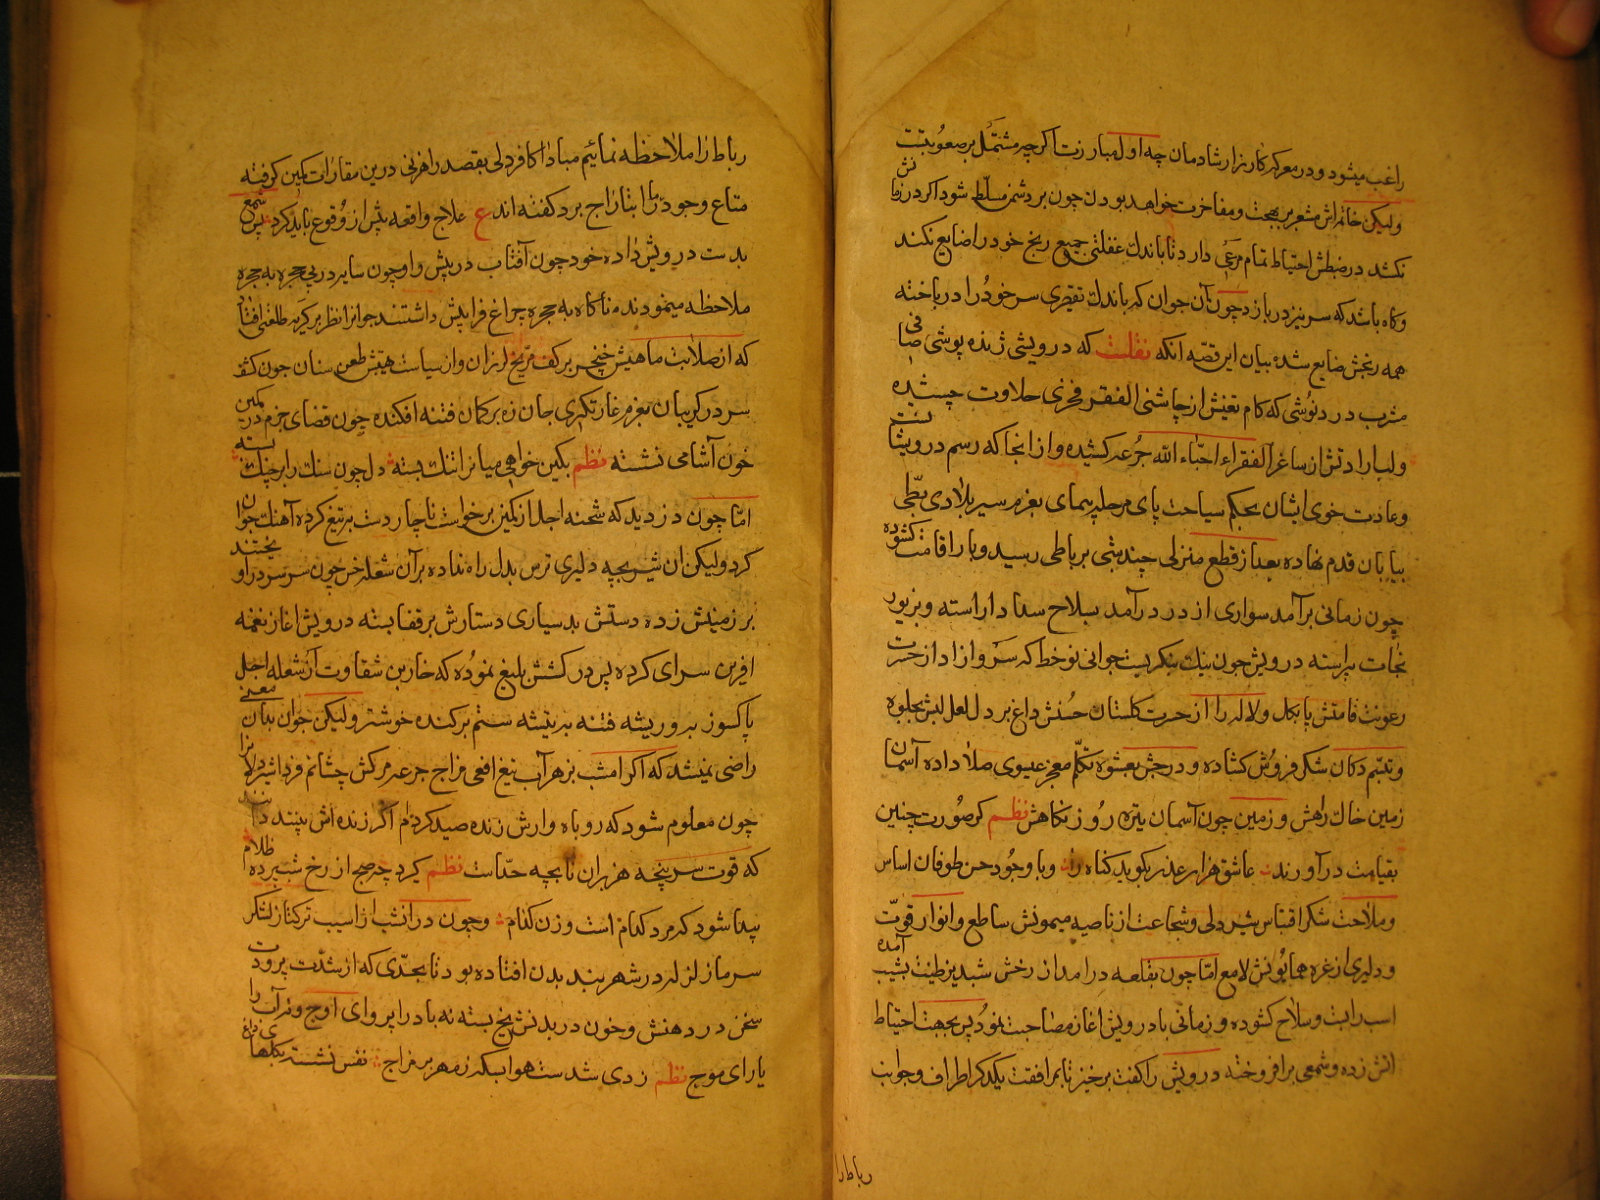 راغب میشود و در معرکه کارزار شادمان چه اول مبارزت اگرچه مشتمل بر صعوبتست
ولیکن خاتم اش مشعر بر بهجت و مفاخرت خواهد بودن چون بر دشمن مسلط شود اگر در
نکشد در ضبطش احتیاط تمام مرعی دارد تا باندك غفلتی جمیع رنج خود را ضایع نکند
و کاه باشد که سر نیز دربازد چون آن جوان که باندك تقصیری سر خود را درباخته
همه رنجش ضایع شده بیان این قصه آنکه نقلست که درویشی ژنده پوشی صافی
مشرب درد نوشی که کام تعیش از چاشنی الفقر فخری حلاوت چشیده
ولب ارادتش از ساغر الفقراء احباء الله جرعه کشیده و از انجا که رسم درویشانست
و عادت خوی ایشان بحکم سیاحت پای مرحله پیمای بعزم سیر بلادی بطی
بیابان قدم نهاده بعد از قطع منزلی چند شبی برباطی رسید و بار اقامت کشوده
چون زمانی برآمد سواری از در درآمد بسلاح سداد اراسته و بزیور
نجات پیراسته درویش چون نیك بنکریست جوانی نوخط که سرو ازاد از حسرت
رعونت قامتش پا بکل و لاله را از حسرت کلستان حسنش داغ بر دل لعل لبش بجلوه
و تبسم دکان شکر فروش کشاده و درجش بعشوه تکلم معجز عیسوی صلا داده آسمان
زمین خاك راهش و زمین چون آسمان تیره روز نکاهش نظم کر صورت چنین
بقیامت درآورند عاشق هزار عذر بکوید کناه را و با وجود حسن طوفان اساس
و ملاحت شکر اقتباس شیر دلی و شجاعت از ناصیه میمونش ساطع و انوار قوت
و دلیری از غره همایونش لامع اما چون بقلعه درامد از رخش شبدیز طینت بشیب آمده
اسب را بست و سلاح کشوده و زمانی با درویش اغاز مصاحبت نمود پس بجهت احتیاط
اتش زده و شمعی برافروخته درویش را کفت برخیز تا بمرافقت یکدکر اطراف و جوانب
رباط را
رباط را ملاحظه نمائیم مبادا کافر دلی بقصد راهزنی درین مقارات کمین کرفته
متاع وجود ما را بتاراج برد کفته اند ع علاج واقعه پیش از وقوع باید کرد پس شمع
بدست درویش داده خود چون آفتاب در پیش و او چون سایه در پی حجره به حجره
ملاحظه مینمودند ناکاه به حجره چراغ فرا پیش داشتند جوانرا نظر بر کربه طلعتی افتاد
که از صلابت ماهیتش خنجر بر کف مریخ لرزان و از سیاست هیتش طعن سنان چون کشف
سر در کریبان بعزم غارتکری جان زه بر کمان فتنه افکنده چون قضای جزم در کمین
خون آشامی نشسته نظم بکین خواهی میانرا تنك بسته دل چون سنك را بر جنك بسته
اما چون دزد دید که شحنه اجل از کمین برخواست ناچار دست بر تیغ کرده آهنك جوان
کرد ولیکن ان شیربچه دلیری ترس بدل راه نداده بر آن شعله خس چون سرسر دراو
بر زمینش زده دستش بدسیاری دستارش بر قفا بسته درویش اغاز نغمه
افرین سرای کرده پس در کشتنش بلیغ نموده که خار بن شقاوت آن شعله اجل
پاکسوز به و ریشه فتنه به تیشه ستم برکنده خوشتر ولیکن جوان بدان معنی
راضی نمیشد که اکر امشب بزهر آب تیغ افعی مزاج جرعه مرکش چشانم فردا شیردلانرا
چون معلوم شود که روباه وارش زنده صید کرده ام اکر زنده اش بینند دانند
که قوت سرپنجه هزبران تا بچه حداست نظم کرد چه صبح از رخ شب پرده ظلام
پیدا شود که مرد کدام است و زن کدام و چون در انشب از اسیب ترکتاز لشکر
سرما زلزله در شهربند بدن افتاده بود تا بحدی که از شدت برودت
سخن در دهنش و خون در بدنش یخ بسته نه باد را پروای اوج و نه آب را
یارای موج نظم ز دی شد ست هوا بسکه زمهر بر مزاج نفس نشسته بکلها